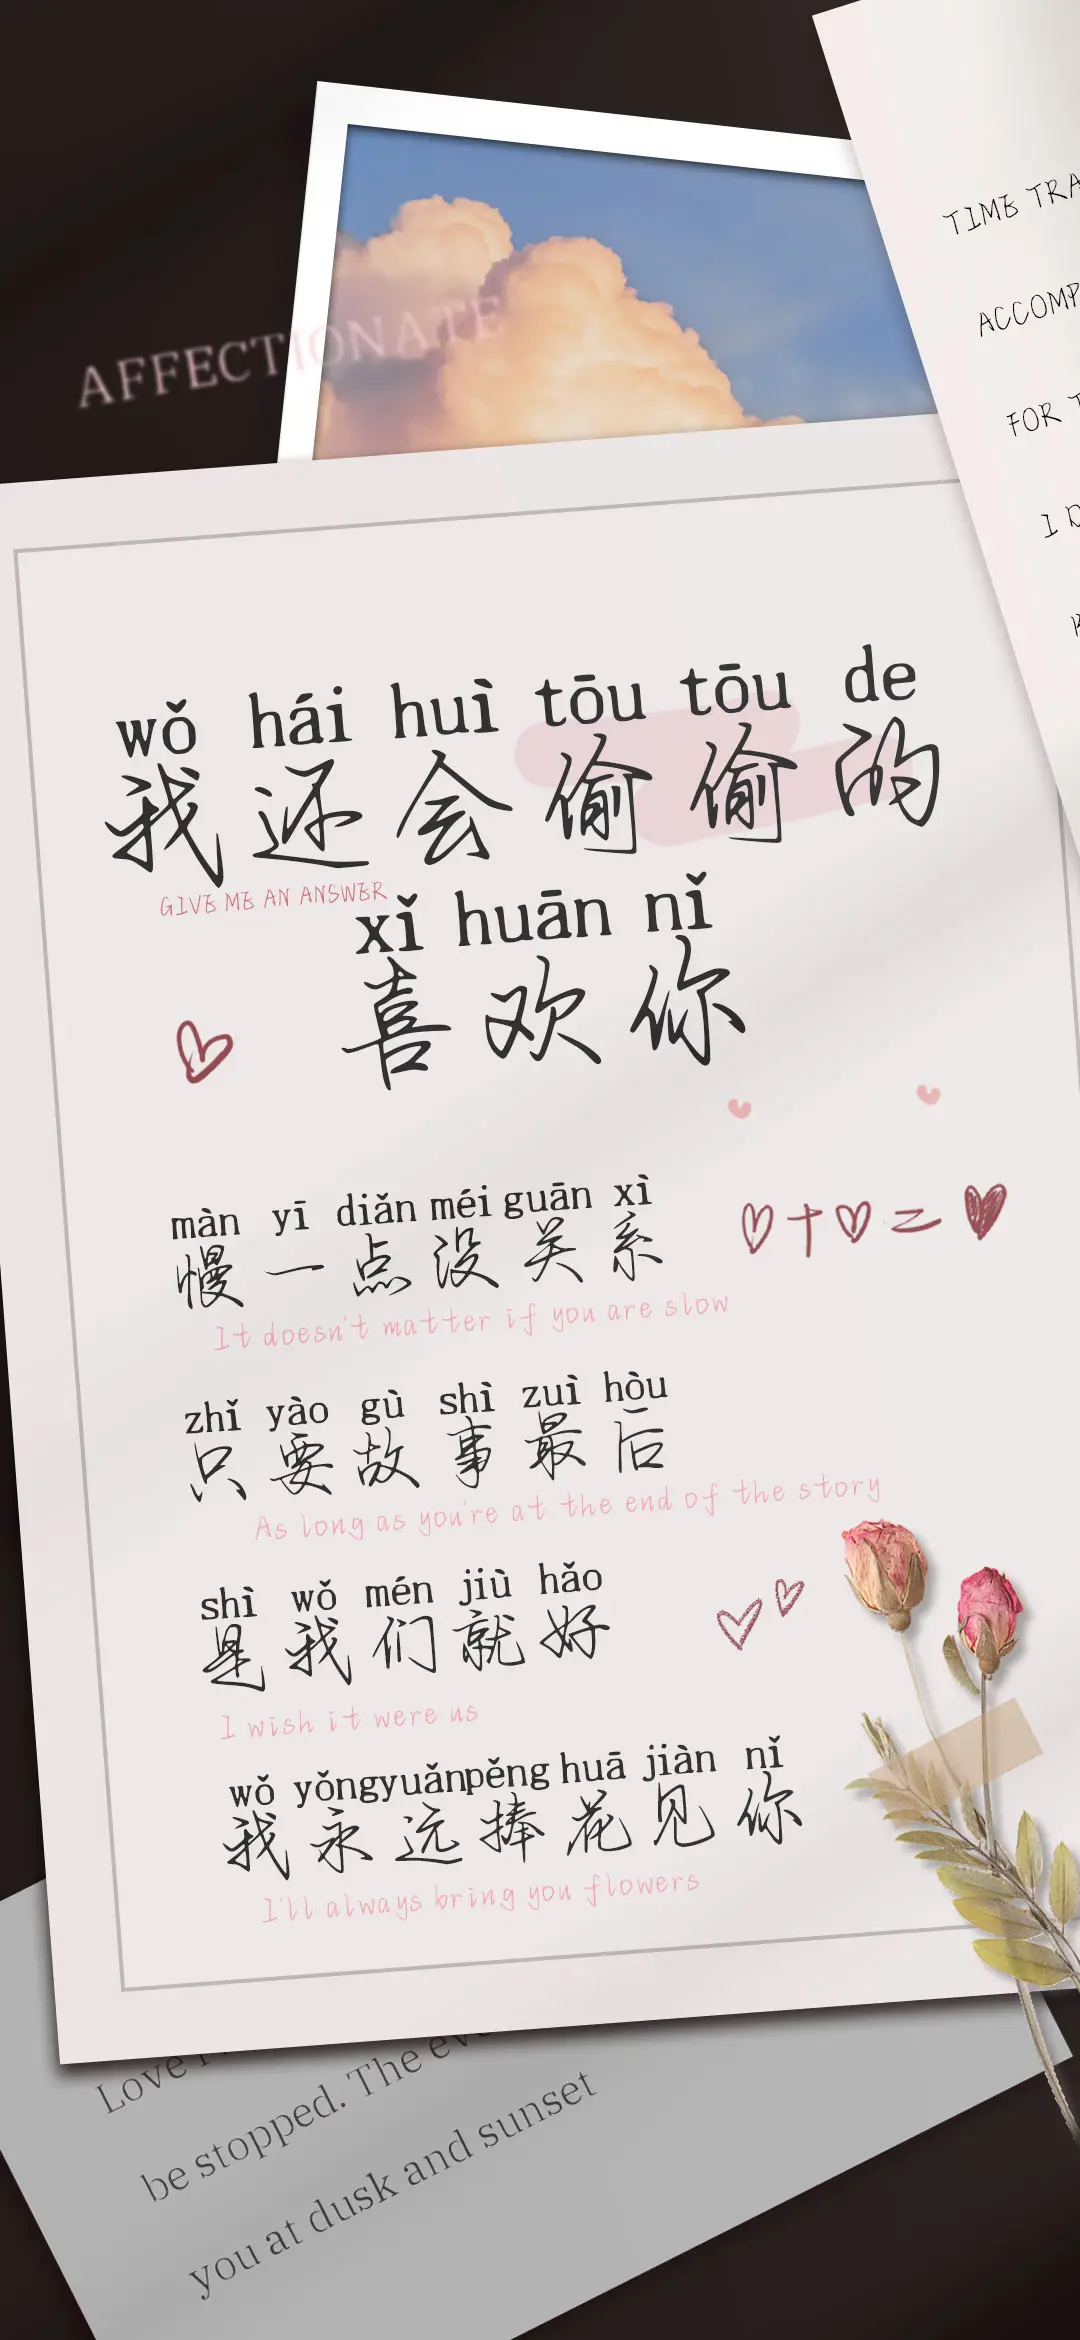 AFFECTIONATE
TIME TRA
ACCOMP
FOR T
I D
wǒ hái huì tōu tōu de
我还会偷偷的
GIVE ME AN ANSWER
xǐ huān nǐ
喜欢你
màn yī diǎn méi guān xì
慢一点没关系
It doesn't matter if you are slow
zhǐ yào gù shì zuì hòu
只要故事最后
As long as you're at the end of the story
shì wǒ mén jiù hǎo
是我们就好
I wish it were us
wǒ yǒngyuǎnpěng huā jiàn nǐ
我永远捧花见你
I'll always bring you flowers
Love
be stopped. The eve
you at dusk and sunset